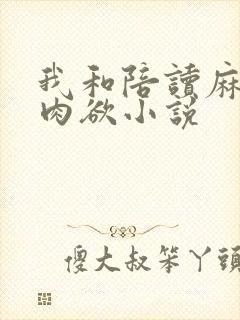 我和陪讀麻
肉欲小說
傻大叔笨丫頭